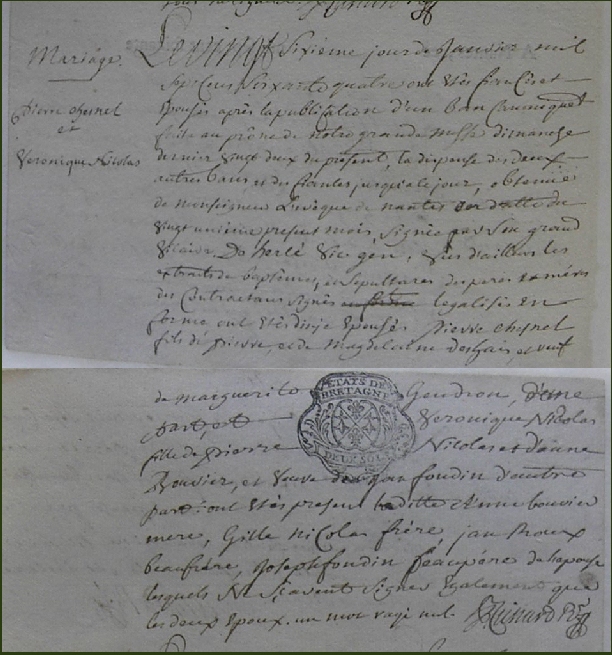 Mariage.
Pierre chesnel
et
Veronique Nicolas
Le vingt Sixieme jour de Janvier mil
Sept Cens Soixante quatre ont étés fiancés et
Epousés après la publication d'un ban Canonique
faite au prône de notre grande messe dimanche
dernier vingt deux du present, la dispense des deux
autres bans et du jusqu'à le jour, obtenue
de monseigneur L'evêque de nantes en datte du
vingt unieme present mois, signée par son grand
Vicaire De herlé Vic gen, Vus d'ailleurs les
extraits de baptêmes, et sepultures des peres meres
des Contractans signés legalisés En
forme ont étés disje Epousés Pierre chesnel
fils de Pierre, et de Magdelaine et veuf
de Marguerite Gendron, d'une
part, et Veronique Nicolas
ETATS DE
BRETAGNE
DEUX SOLS
fille de Pierre Nicolas et d'anne
Bouvier, et Veuve de fondin d'autre
part, ont étés present laditte Anne bouvier
mere, Gille Nicolas frère, jan
beaufrere, Joseph fondin beaupére de lepouse
lesquels Ne Sçavent Signer Egalement que
les deux Epoux. un mot rayé nul